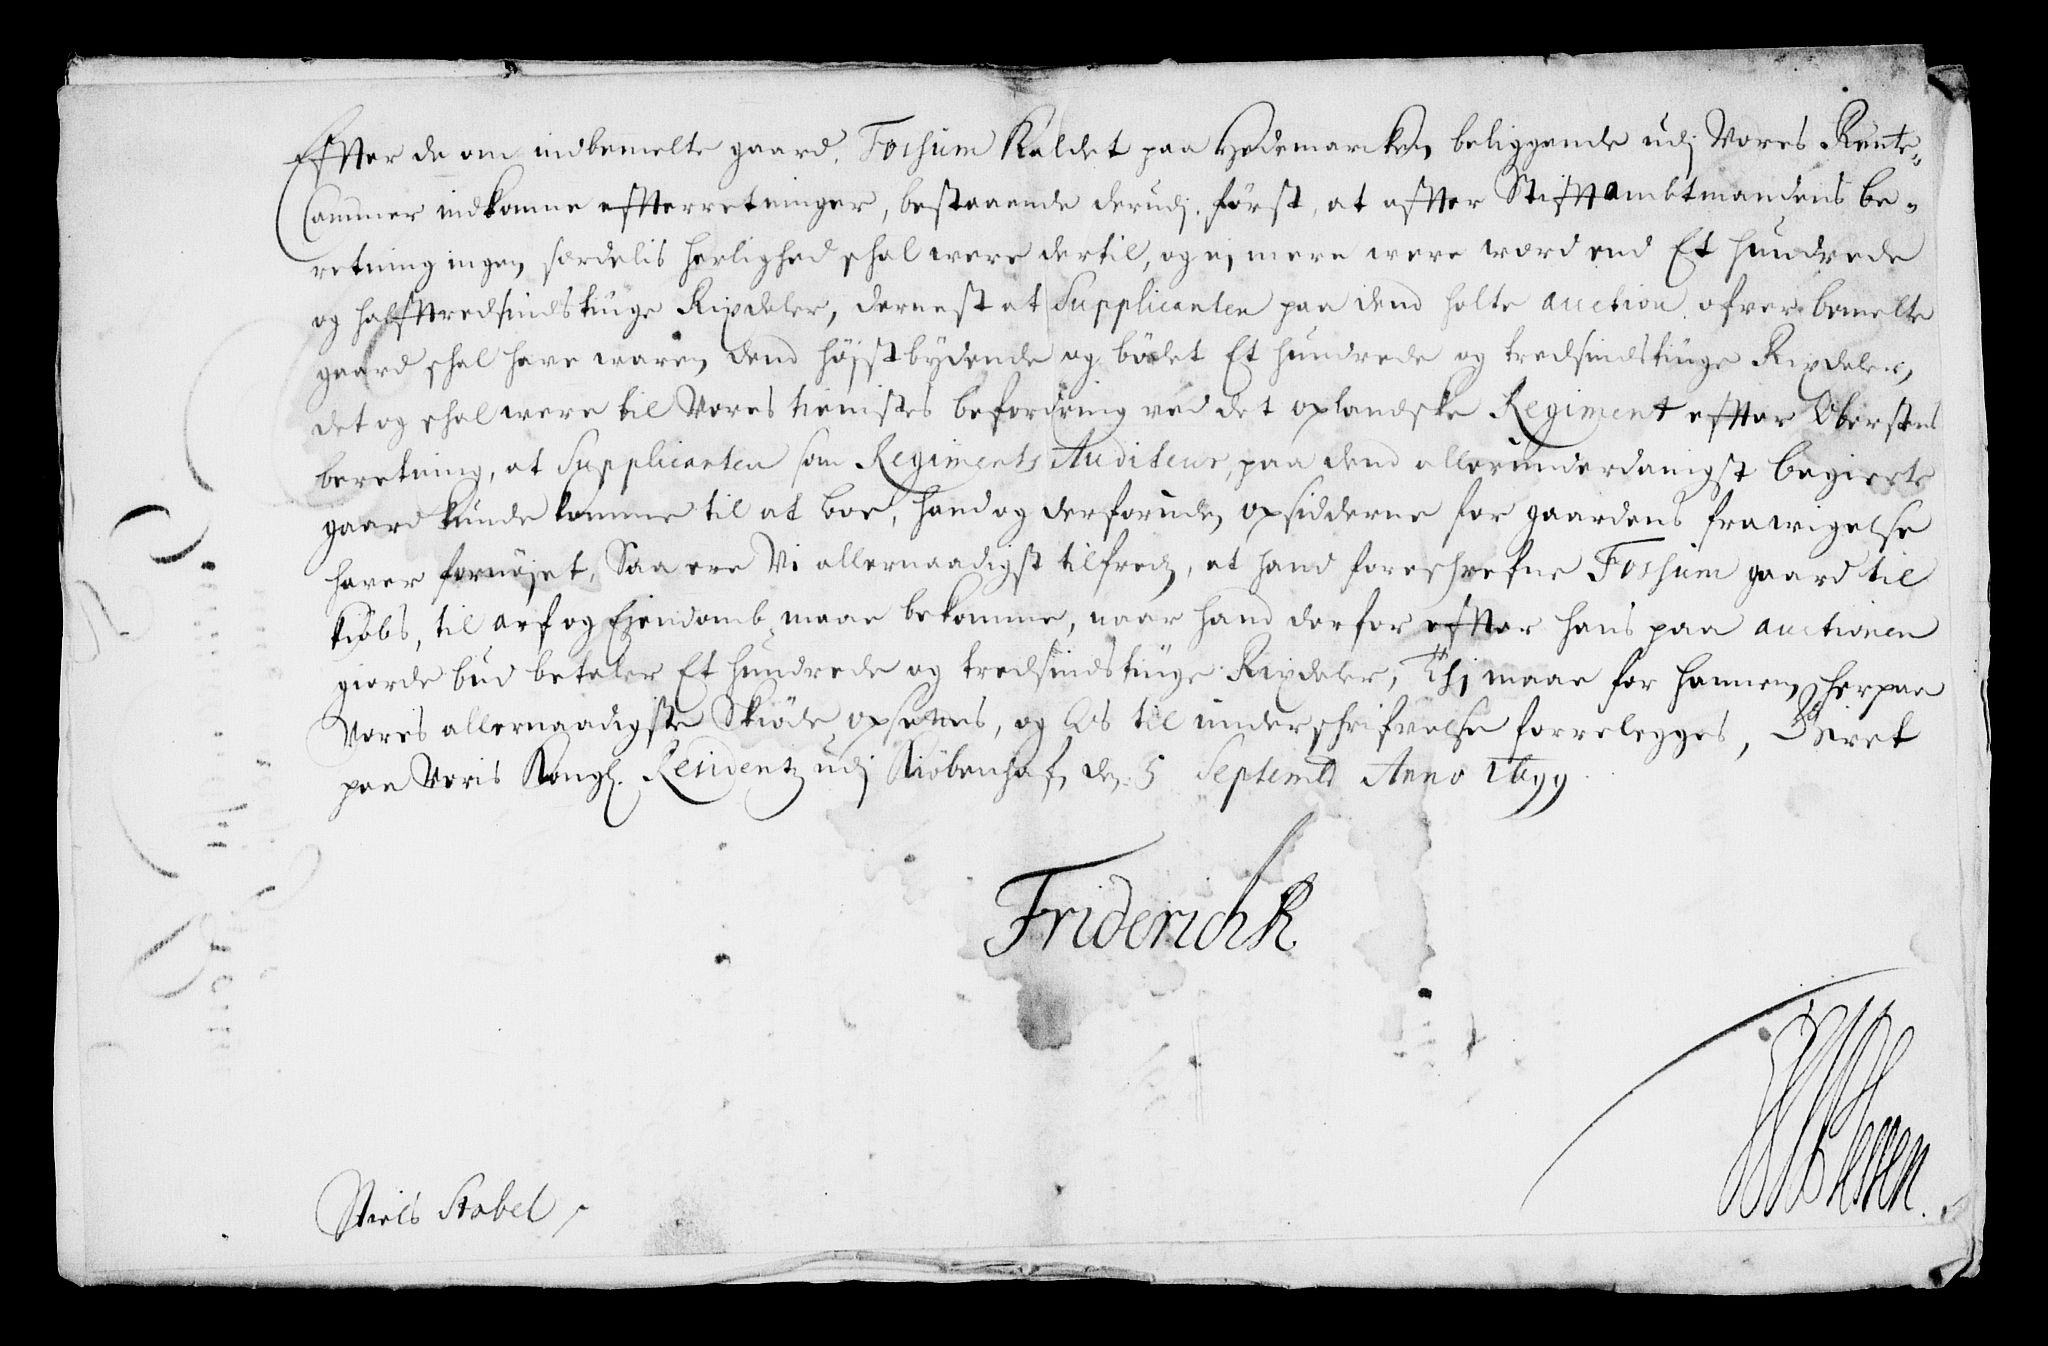 Effter de om indbemelte gaard, Fossum Kaldet paa Hedemarcken, beliggende udj Vores Rente-
Cammer indkomne effterretninger, bestaaende derudj, först, at effter Stifftambtmandens be-
retning ingen særdelis herlighed skal were dertil, og ej mere were word end Et hundrede
og halfftredsindstiuge Rixdaler, dernest at Supplicanten paa dend holte auction ofver bemelte
gaard skal have waren, dend höjstbydende og bödet Et hundrede og tredsindstiuge Rixdaler,
det og skal were til Vores tienistes befordring ved det oplandske Regiment effter Oberstens
beretning, at Supplicanten som Regiments Auditeur, paa dend allerunderdanigst begierte
gaard kunde komme til at boe, hand og derforuden, opsidderne for gaardens frawigelse
haver fornöjet, Saa ere Vi allernaadigst tilfreds, at hand foreskrefne Fossum gaard til
kiöbs, til arf og Ejendomb, maae bekomme, naar hand derfor effter hans paa auctionen
giorde bud betaler Et hundrede og tredsindstiuge Rixdaler, Thj maae for hannem, herpaa
Vores allernaadigste Skiöde opsettes, og Os til underskrifvelse forrelegges, Skrevet
paa Voris Kongl. Residentz udj Kiöbenhafn, den 5 Septembr Anno 1699.
Friderich R
Niels Stobel